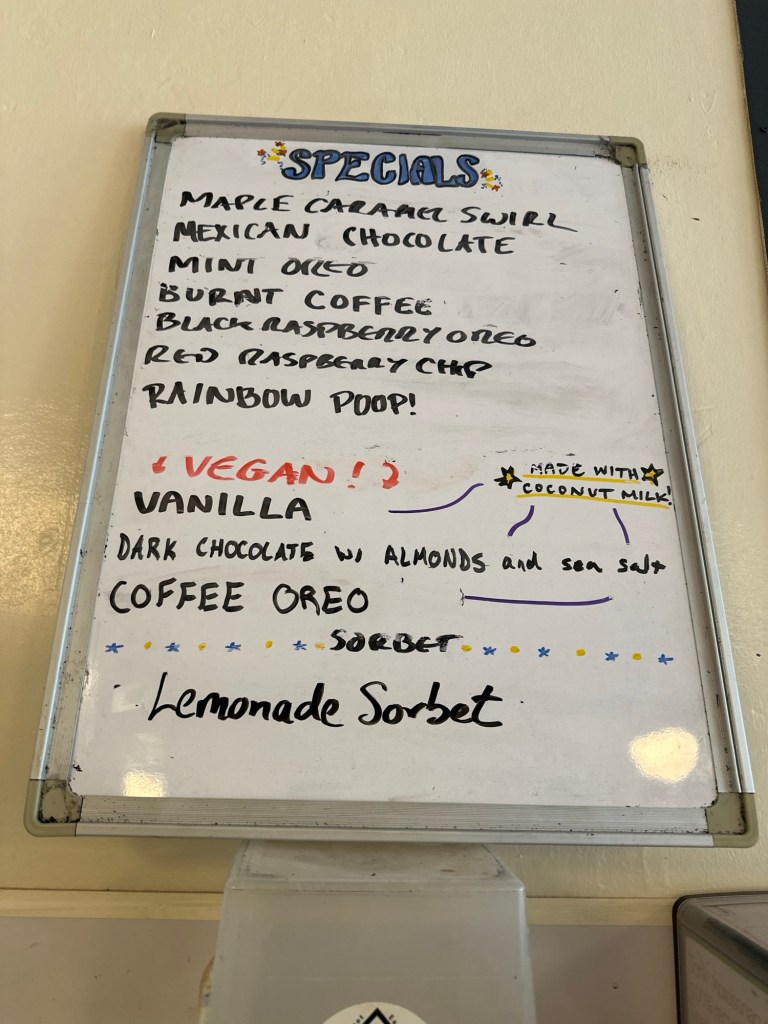 SPECIALS
MAPLE CARAMEL SWIRL
MEXICAN CHOCOLATE
MINT OREO
BURNT COFFEE
BLACK RASPBERRY OREO
RED RASPBERRY CHIP
RAINBOW POOP!
VEGAN!
MADE WITH
COCONUT MILK!
VANILLA
DARK CHOCOLATE W/ ALMONDS and sea salt
COFFEE OREO
SORBET
Lemonade Sorbet